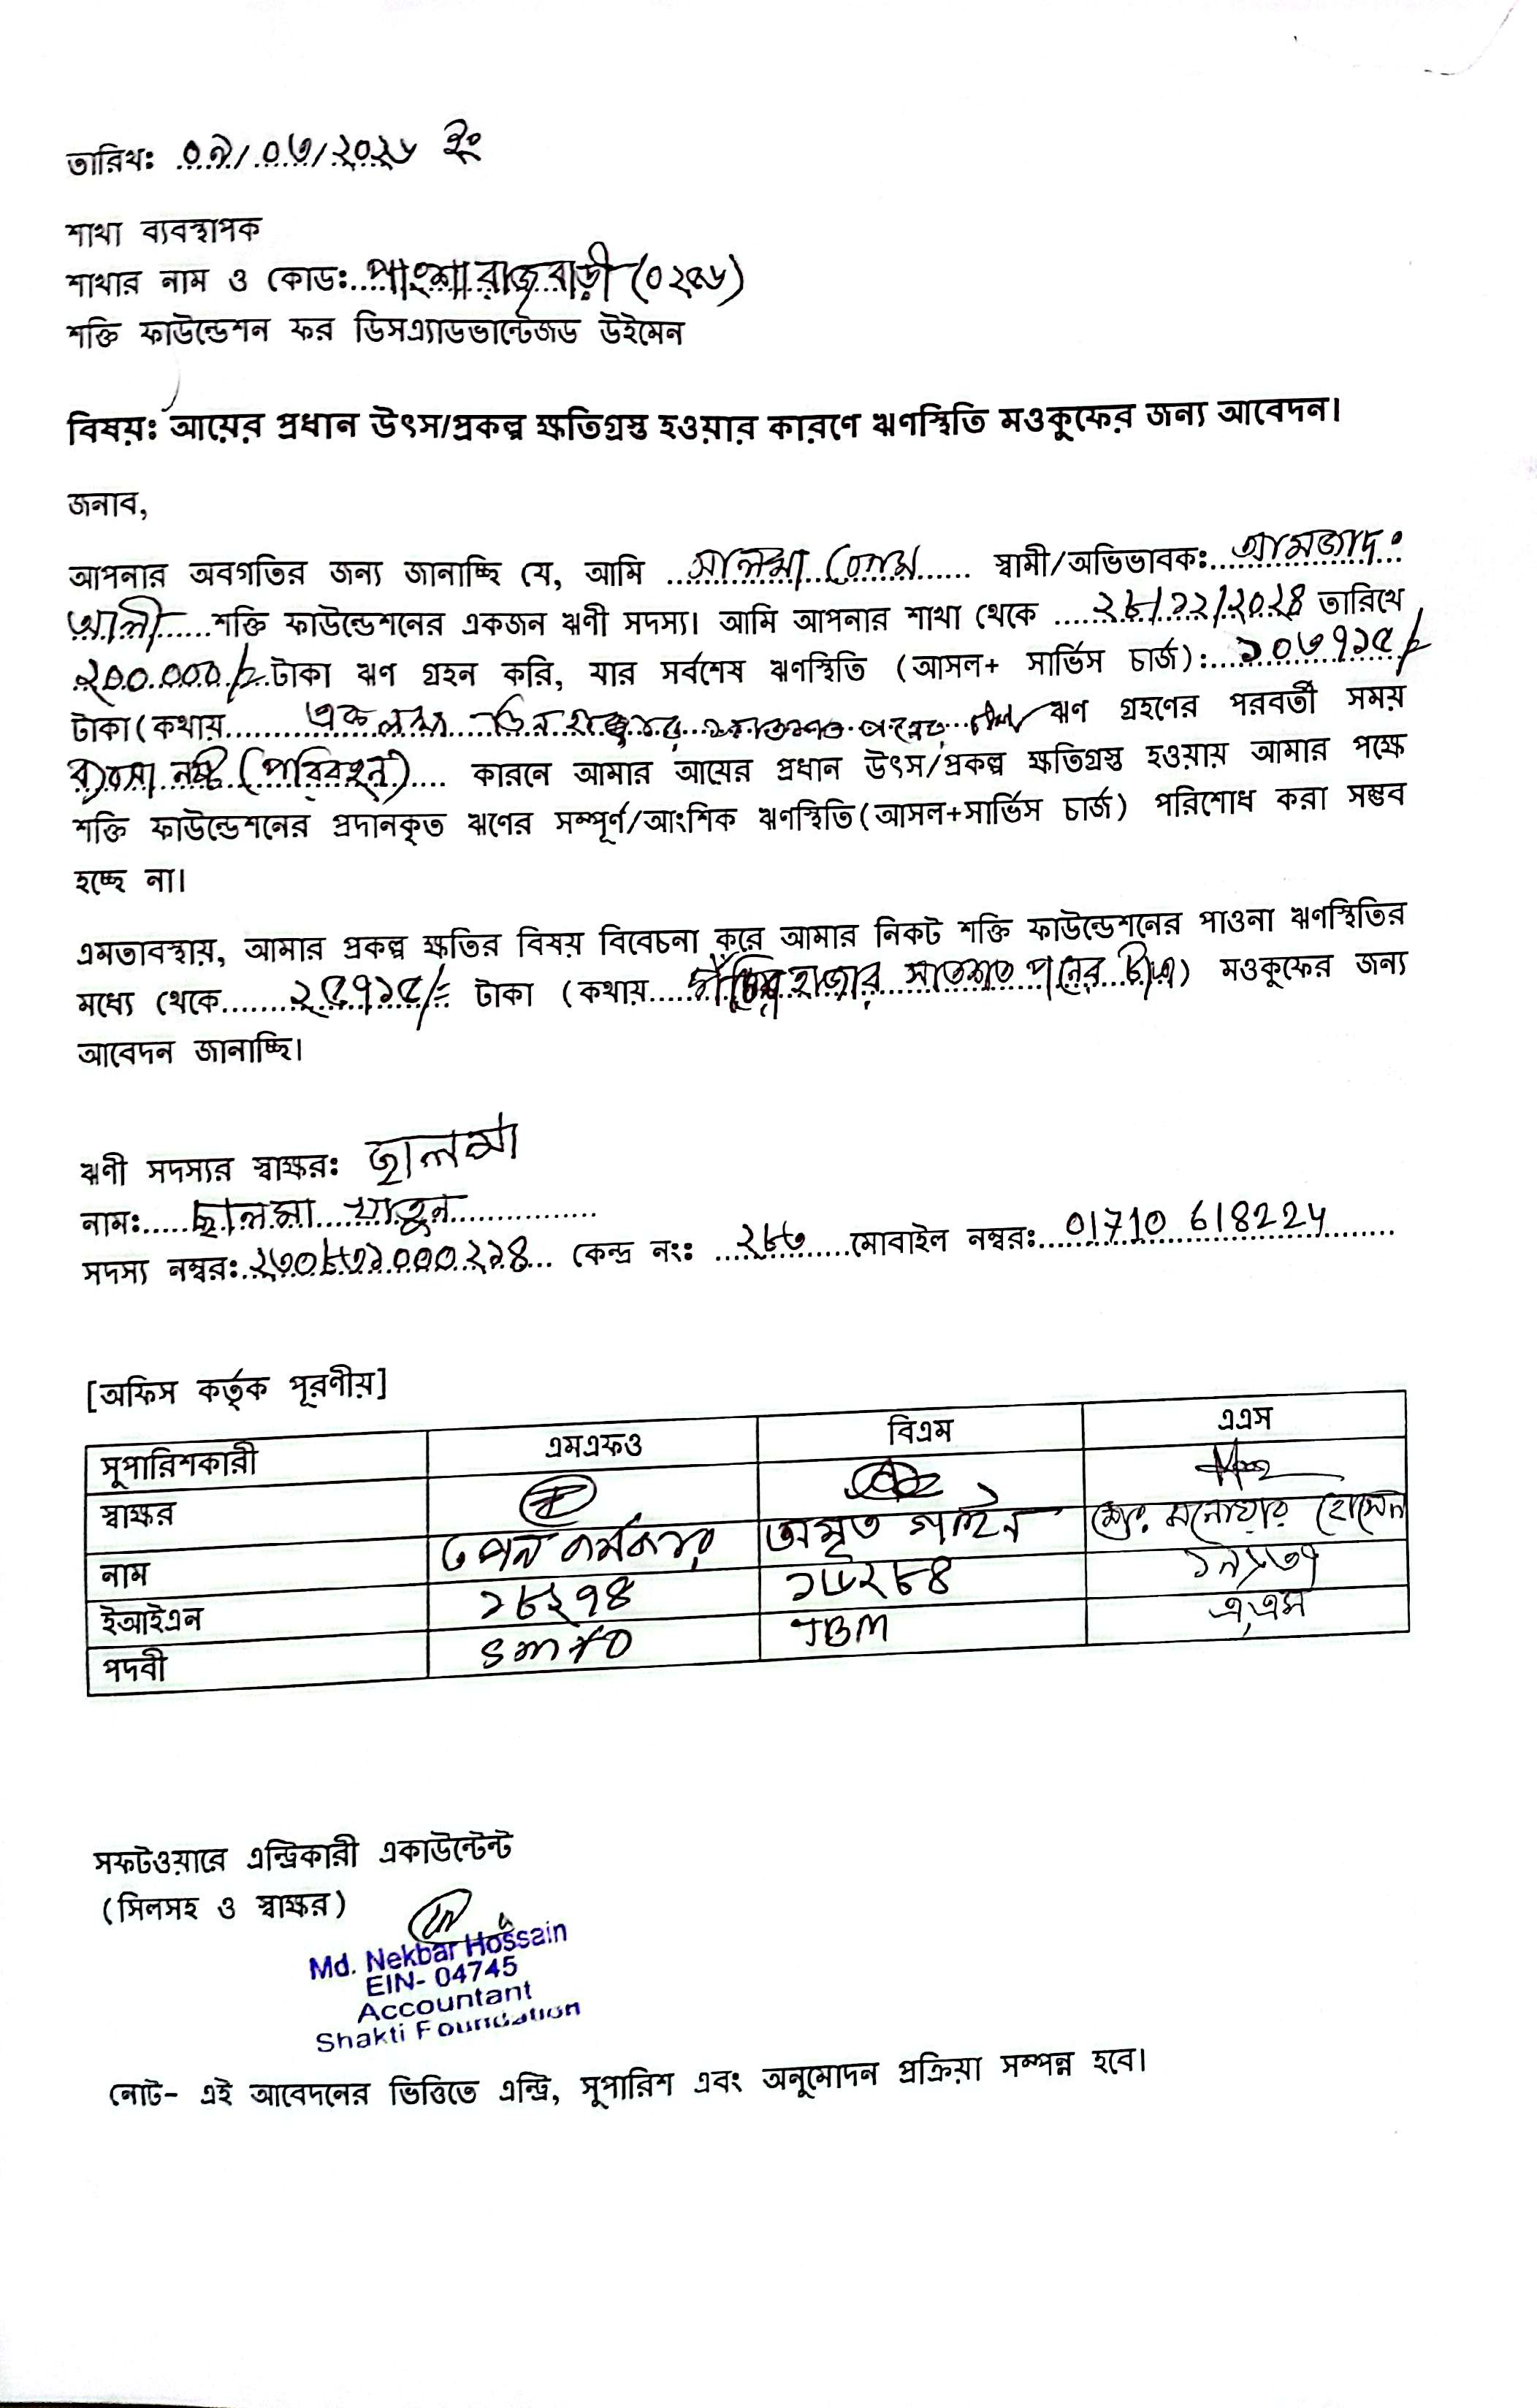 তারিখঃ ০৯/০৩/২০২৬ ইং
শাখা ব্যবস্থাপক
শাখার নাম ও কোডঃ পাংশা রাজবাড়ী (০২৫৬)
শক্তি ফাউন্ডেশন ফর ডিসএ্যাডভান্টেজড উইমেন
বিষয়ঃ আয়ের প্রধান উৎস/প্রকল্প ক্ষতিগ্রস্ত হওয়ার কারণে ঋণস্থিতি মওকুফের জন্য আবেদন।
জনাব,
আপনার অবগতির জন্য জানাচ্ছি যে, আমি সালমা বেগম স্বামী/অভিভাবকঃ আমজাদ
আলী শক্তি ফাউন্ডেশনের একজন ঋণী সদস্য। আমি আপনার শাখা থেকে ২৮/১২/২০২৪ তারিখে
২০০.০০০/= টাকা ঋণ গ্রহন করি, যার সর্বশেষ ঋণস্থিতি (আসল+ সার্ভিস চার্জ)ঃ ১০৩৭১৫/=
টাকা (কথায় এক লক্ষ তিন হাজার সাতশত পনের টাকা ঋণ গ্রহণের পরবর্তী সময়
ব্যবসা নষ্ট (পরিবহন) কারনে আমার আয়ের প্রধান উৎস/প্রকল্প ক্ষতিগ্রস্ত হওয়ায় আমার পক্ষে
শক্তি ফাউন্ডেশনের প্রদানকৃত ঋণের সম্পূর্ণ/আংশিক ঋণস্থিতি (আসল+সার্ভিস চার্জ) পরিশোধ করা সম্ভব
হচ্ছে না।
এমতাবস্থায়, আমার প্রকল্প ক্ষতির বিষয় বিবেচনা করে আমার নিকট শক্তি ফাউন্ডেশনের পাওনা ঋণস্থিতির
মধ্যে থেকে ২৫৭১৫/= টাকা (কথায় হাজার সাতশত পনের টাকা) মওকুফের জন্য
আবেদন জানাচ্ছি।
ঋণী সদস্যর স্বাক্ষরঃ ছালমা
নামঃ ছালমা খাতুন
সদস্য নম্বরঃ ২৩০৮৫১০০০২১৪ কেন্দ্র নংঃ ২৮৩ মোবাইল নম্বরঃ 01710 618224
[অফিস কর্তৃক পূরণীয়]
সুপারিশকারী এমএফও বিএম এএস
স্বাক্ষর
নাম তপন কর্মকার অমৃত মোঃ মনোয়ার হোসেন
ইআইএন ১৮২৭৪ ১৬২৮৪
পদবী SMFO JBM এ,এস
সফটওয়ারে এন্ট্রিকারী একাউন্টেন্ট
(সিলসহ ও স্বাক্ষর)
Md. Nekbar Hossain
EIN- 04745
Accountant
Shakti Foundation
নোট- এই আবেদনের ভিত্তিতে এন্ট্রি, সুপারিশ এবং অনুমোদন প্রক্রিয়া সম্পন্ন হবে।